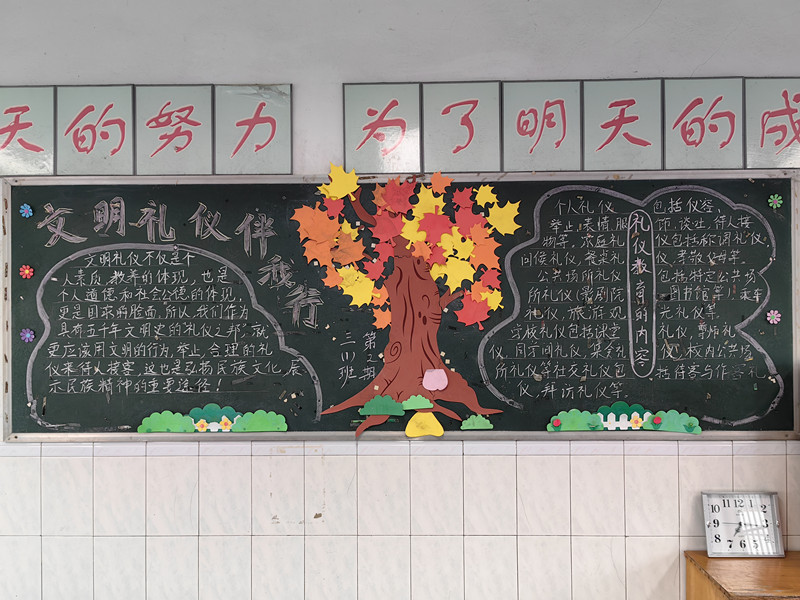 天的努力 为了明天的成
文明礼仪伴我行
文明礼仪不仅是个
人素质、教养的体现，也是
个人道德和社会公德的体现，
更是国家的脸面，所以，我们作为
具有五千年文明史的礼仪之邦，就
更应该用文明的行为，举止，合理的礼
仪来待人接客，这也是弘扬民族文化、展
示民族精神的重要途径！
三(1)班
第2期
礼仪教育的内容
个人礼仪 包括仪容
举止，表情，服 饰、谈吐、待人接
物等。家庭礼 仪包括称谓礼仪、
问候礼仪、餐桌礼 仪、孝敬父母等。
公共场所礼仪 包括特定公共场
所礼仪（影剧院 图书馆等）、乘车
礼仪、旅游观 光礼仪等。
学校礼仪包括课堂 礼仪，尊师礼
仪、同学间礼仪，集会礼 仪，校内公共场
所礼仪等社交礼仪包 括待客与作客礼
仪、拜访礼仪等
10 11 12 1 2 3 4 5 6 7 8 9